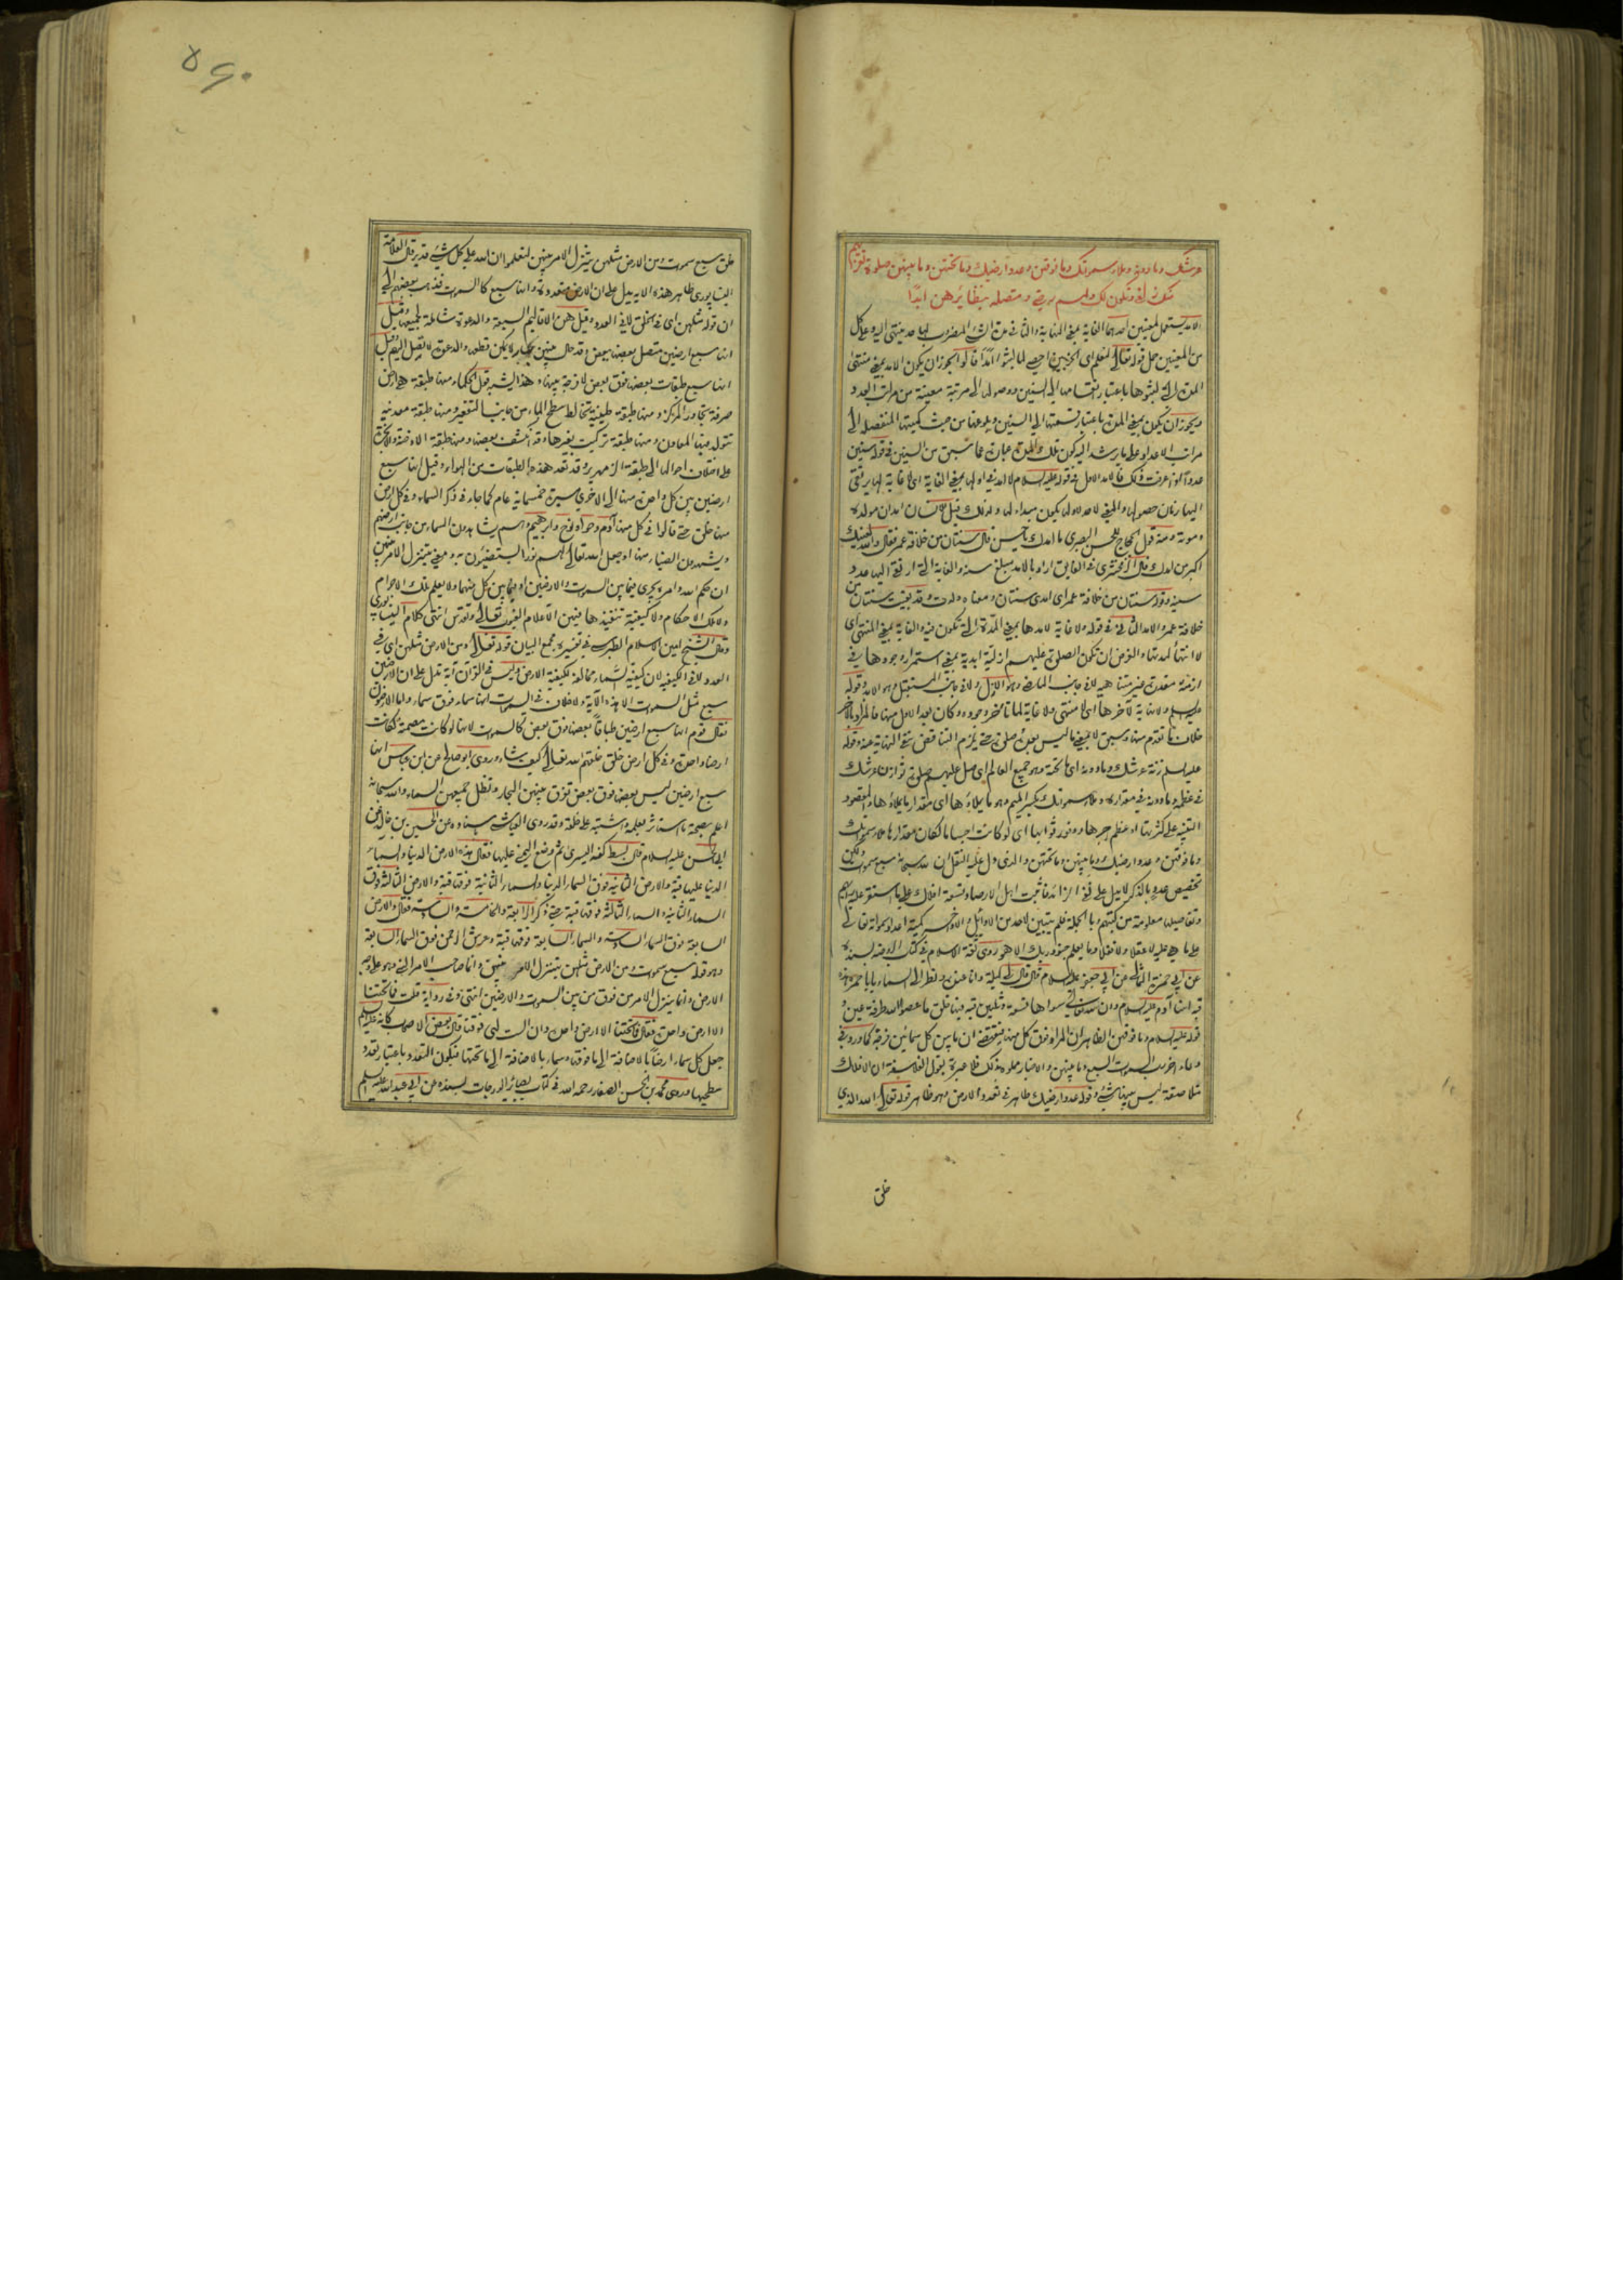 عرشك وما دونه وملاء سمواتك وما فوقهن وعدد ارضيك وما تحتهن وما بينهن صلوة تقربهم
منك زلفى وتكون لك ولهم رضى ومتصلة بنظائرهن ابدًا
الامد يستعمل لمعنيين احدهما الغاية بمعنى النهاية والثاني مدة الشيء المضروب لها حد ينتهي اليه وعلى كل
من المعنيين حمل قوله تعالى لنعلم اي الحزبين احصى لما لبثوا امدًا قالوا يجوز ان يكون الامد بمعنى منتهى
المدة التي لبثوها باعتبار انقسامها الى السنين ووصولها الى مرتبة معينة من مراتب العدد
ويجوز ان يكون بمعنى المدة باعتبار قسمتها الى السنين وبلوغها من حيث كميتها المنفصلة الى
مراتب الاعداد على ما يرشد اليه كون تلك المدة عبارة عما سبق من السنين في قوله سنين
عددا اذا عرفت ذلك فالامد الاول في قوله عليه السلام لا امد في اولها بمعنى الغاية اي لا غاية لها يرتقى
اليها زمان حصولها والمعنى لا حد لاولها يكون مبداء لها ولذلك قيل للانسان امدان مولده
وموته ومنه قول الحجاج للحسن البصري ما امدك يا حسن قال سنتان من خلافة عمر فقال والله لعينك
اكبر من امدك قال الزمخشري في الفايق اراد بالامد مبلغ سنه والغاية التي ارتقى اليها عدد
سنيه وقوله سنتان من خلافة عمر اي امدي سنتان ومعناه ولدت وقد بقيت سنتان من
خلافة عمر والامد الثاني في قوله ولا غاية لامدها بمعنى المدة التي تكون فيه والغاية بمعنى المنتهى اي
لا انتهاء لمدتها والغرض ان تكون الصلوة عليهم ازلية ابدية بمعنى استمرار وجودها في
ازمنة مقدرة غير متناهية لا في جانب الماضي وهو الازل ولا في جانب المستقبل وهو الابد وقوله
عليه السلم ولا نهاية لآخرها اي لا منتهى ولا غاية لما تأخر وجوده وكان بعد الاول منها فالمراد بالآخر
خلاف ما تقدم منها وسبق لا بمعنى ما ليس بعده صلوة حتى يلزم التناقض بنفي النهاية عنه وقوله
عليه السلم زنة عرشك وما دونه اي ما تحته وهو جميع العالم اي صل عليهم صلوة توازن عرشك
في عظمه وما دونه في مقداره وملاء سمواتك بكسر الميم وهو ما يملاءها اي مقدار ما يملاءها والمقصود
التنبيه على كثرتها او عظم اجرها ووفور ثوابها اي لو كانت اجساما لكان مقدارها ملاء سمواتك
وما فوقهن وعدد ارضيك وما بينهن وما تحتهن والذي دل عليه النقل ان لله سبحانه سبع سموات ولكن
تخصيص عدد بالذكر لا يدل على نفي الزائد فاثبت اهل الارصاد تسعة افلاك على ما استقر عليه رايهم
وتفاصيلها معلومة من كتبهم وبالجملة فلم يتبين لاحد من الاوائل والاواخر كمية اعداد سمواته تعالى
على ما هي عليه لا عقلا ولا نقلا وما يعلم جنود ربك الا هو روى ثقة الاسلام في كتاب الروضة بسنده
عن ابي حمزة الثمالي عن ابي جعفر عليه السلام قال قال لي ليلة وانا عنده ونظر الى السماء يا با حمزة هذه
قبة ابينا آدم عليه السلام وان لله تعالى سواها تسعة وثلثين قبة فيها خلق ما عصوا الله طرفة عين و
قوله عليه السلام وما فوقهن الظاهر ان المراد فوق كل منها فيقتضي ان ما بين كل سمائين فرجة كما ورد في
دعاء اخر رب السموات السبع وما بينهن والاخبار مملوءة بذلك فلا عبرة بقول الفلاسفة ان الافلاك
متلاصقة ليس بينها شيء وقوله عدد ارضيك ظاهر في تعدد الارض وهو ظاهر قوله تعالى الله الذي
خلق
٥٩٠
خلق سبع سموات ومن الارض مثلهن يتنزل الامر بينهن لتعلموا ان الله على كل شيء قدير قال العلامة
النيشابوري ظاهر هذه الاية يدل على ان الارض متعددة وانها سبع كالسموات فذهب بعضهم الى
ان قوله مثلهن اي في الخلق لا في العدد وقيل هن الاقاليم السبعة والدعوة شاملة لجميعها وقيل
انها سبع ارضين متصل بعضها ببعض وقد حال بينهن بحار لا يمكن قطعها والدعوة لا تصل اليهم وقيل
انها سبع طبقات بعضها فوق بعض لا فرجة بينها وهذا يشبه قول الحكماء منها طبقة هي ارض
صرفة تجاور المركز ومنها طبقة طينية تخالط سطح الماء من جانب التقعير ومنها طبقة معدنية
تتولد فيها المعادن ومنها طبقة تركبت بغيرها وقد انكشف بعضها ومنها طبقة الادخنة والابخرة
على اختلاف احوالها الى طبقة الزمهرير وقد تعد هذه الطبقات من الهواء وقيل انها سبع
ارضين بين كل واحدة منها الى الاخرى مسيرة خمسماية عام كما جاء في ذكر السماء وفي كل ارض
منها خلق حتى قالوا في كل منها آدم وحوا ونوح وابرهيم وهم يشاهدون السماء من جانب ارضهم
ويشهدون الضياء منها او جعل الله تعالى لهم نورا يستضيئون به ومعنى يتنزل الامر بينهن
ان حكم الله وامره يجري فيما بين السموات والارضين او فيما بين كل منهما ولا يعلم تلك الاجرام
ولا تلك الاحكام ولا كيفية تنفيذها فيهن الا علام الغيوب تعالى وتقدس انتهى كلام النيشابوري
وقال الشيخ امين الاسلام الطبرسي في تفسيره مجمع البيان قوله تعالى ومن الارض مثلهن اي في
العدد لا في الكيفية لان كيفية السماء مخالفة لكيفية الارض وليس في القرآن آية تدل على ان الارضين
سبع مثل السموات الا هذه الآية ولا خلاف في السموات انها سماء فوق سماء واما الارضون
فقال قوم انها سبع ارضين طباقًا بعضها فوق بعض كالسموات لانها لو كانت مصمتة لكانت
ارضا واحدة وفي كل ارض خلق خلقهم الله تعالى كيف شاء وروى ابو صالح عن ابن عباس انها
سبع ارضين ليس بعضها فوق بعض تفرق بينهن البحار وتظل جميعهن السماء والله سبحانه
اعلم بصحة ما استاثر بعلمه واشتبه على خلقه وقد روى العياشي بسناده عن الحسين بن خالد عن
ابي الحسن عليه السلام قال بسط كفه اليسرى ثم وضع اليمنى عليها فقال هذه الارض الدنيا والسماء
الدنيا عليها قبة والارض الثانية فوق السماء الدنيا والسماء الثانية فوقها قبة والارض الثالثة فوق
السماء الثانية والسماء الثالثة فوقها قبة حتى ذكر الرابعة والخامسة والسادسة فقال والارض
السابعة فوق السماء السادسة والسماء السابعة فوقها قبة وعرش الرحمن فوق السماء السابعة
وهو قوله سبع سموات ومن الارض مثلهن يتنزل الامر بينهن وانما صاحب الامر النبي وهو على وجه
الارض وانما يتنزل الامر من فوق من بين السموات والارضين انتهى وفي رواية قلت فما تحتنا
الا ارض واحدة فقال فما تحتنا الا ارض واحدة وان الست لهي فوقنا قال بعض الاصحاب كانه عليه السلم
جعل كل سماء ارضًا بالاضافة الى ما فوقها وسماء بالاضافة الى ما تحتها فيكون التعدد باعتبار تعدد
سطحيها وروى محمد بن الحسن الصفار رحمه الله في كتاب بصائر الدرجات بسنده عن ابي عبد الله عليه السلم